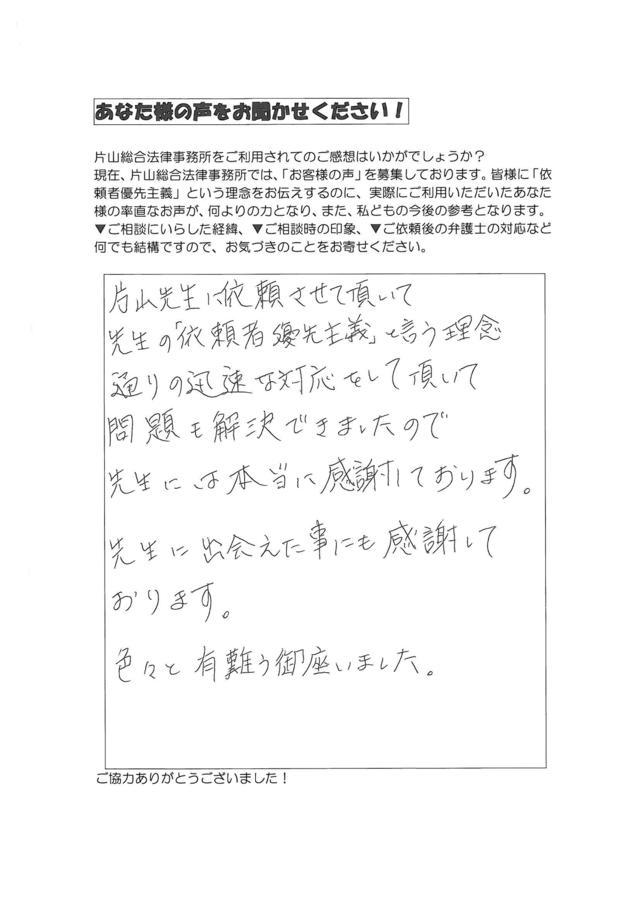 あなた様の声をお聞かせください！
片山総合法律事務所をご利用されてのご感想はいかがでしょうか？
現在、片山総合法律事務所では、「お客様の声」を募集しております。皆様に「依
頼者優先主義」という理念をお伝えするのに、実際にご利用いただいたあなた
様の率直なお声が、何よりの力となり、また、私どもの今後の参考となります。
▼ご相談にいらした経緯、▼ご相談時の印象、▼ご依頼後の弁護士の対応など
何でも結構ですので、お気づきのことをお寄せください。
片山先生に依頼させて頂いて
先生の「依頼者優先主義」と言う理念
通りの迅速な対応をして頂いて
問題も解決できましたので
先生には本当に感謝しております。
先生に出会えた事にも感謝して
おります。
色々と有難う御座いました。
ご協力ありがとうございました！